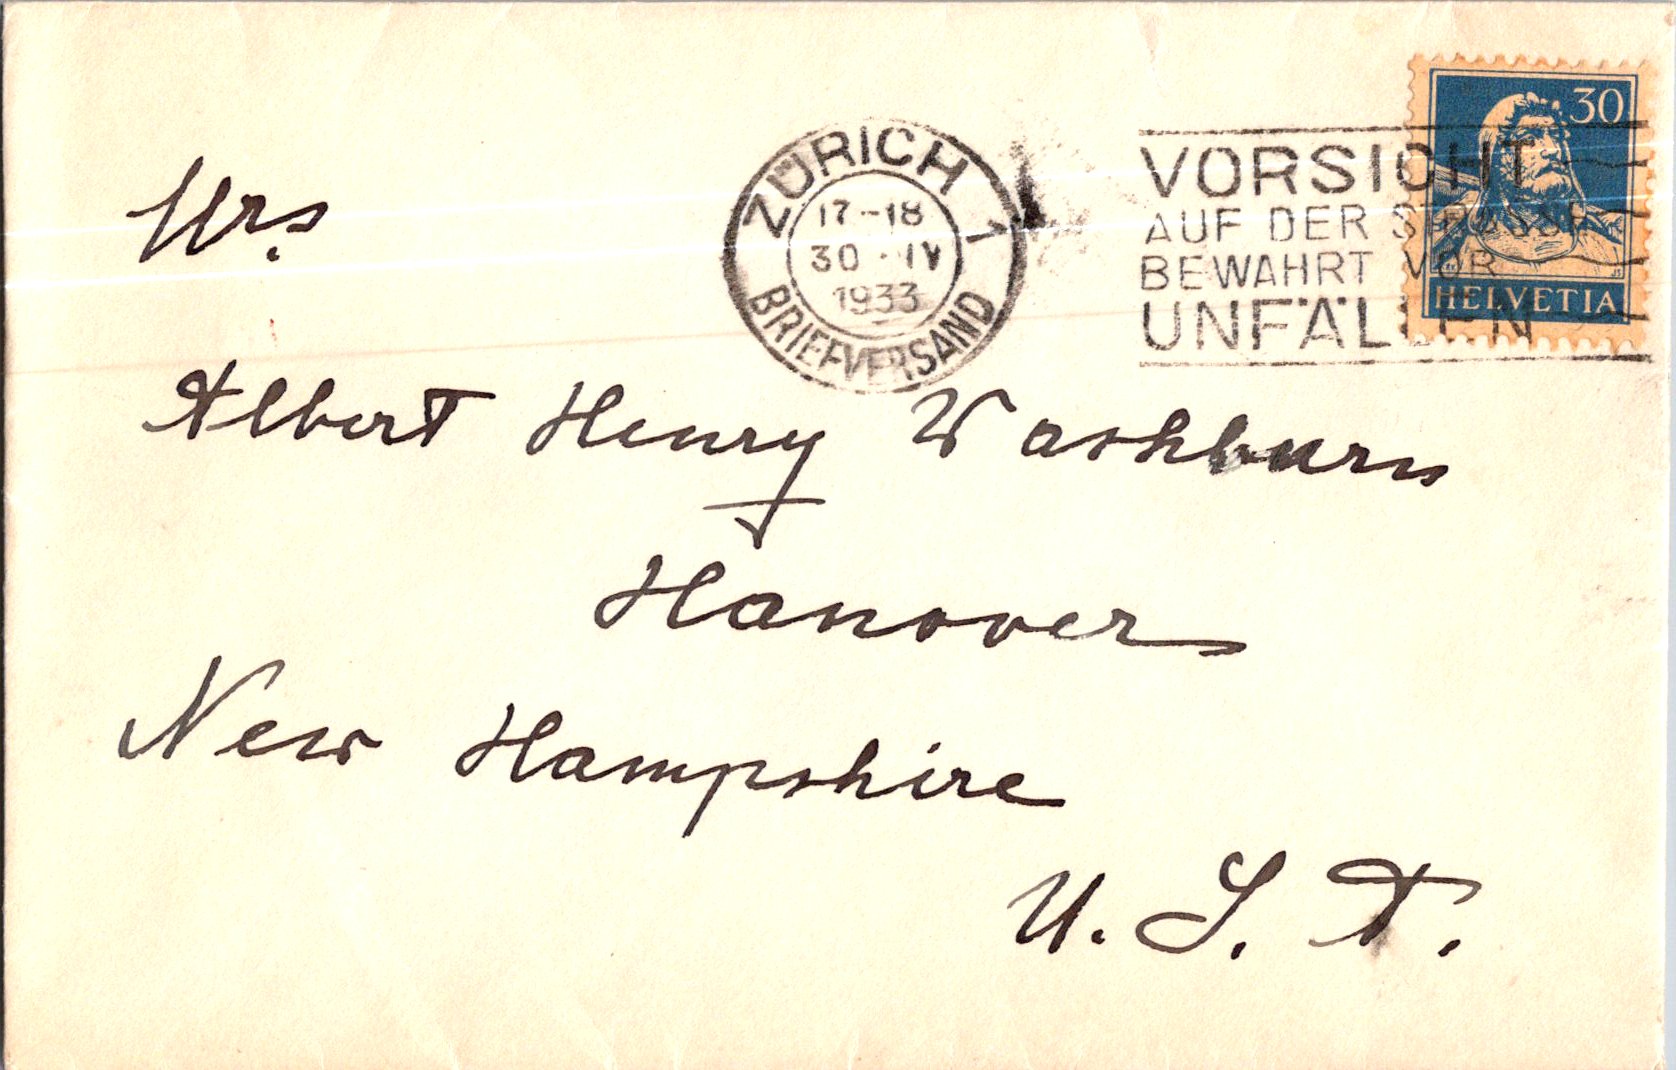 ZÜRICH 1
17-18
30.IV
1933
BRIEFVERSAND
VORSICHT
AUF DER STRASSE
BEWAHRT VOR
UNFÄLLEN
30
HELVETIA
Mrs
Albert Henry Washburn
Hanover
New Hampshire
U. S. A.